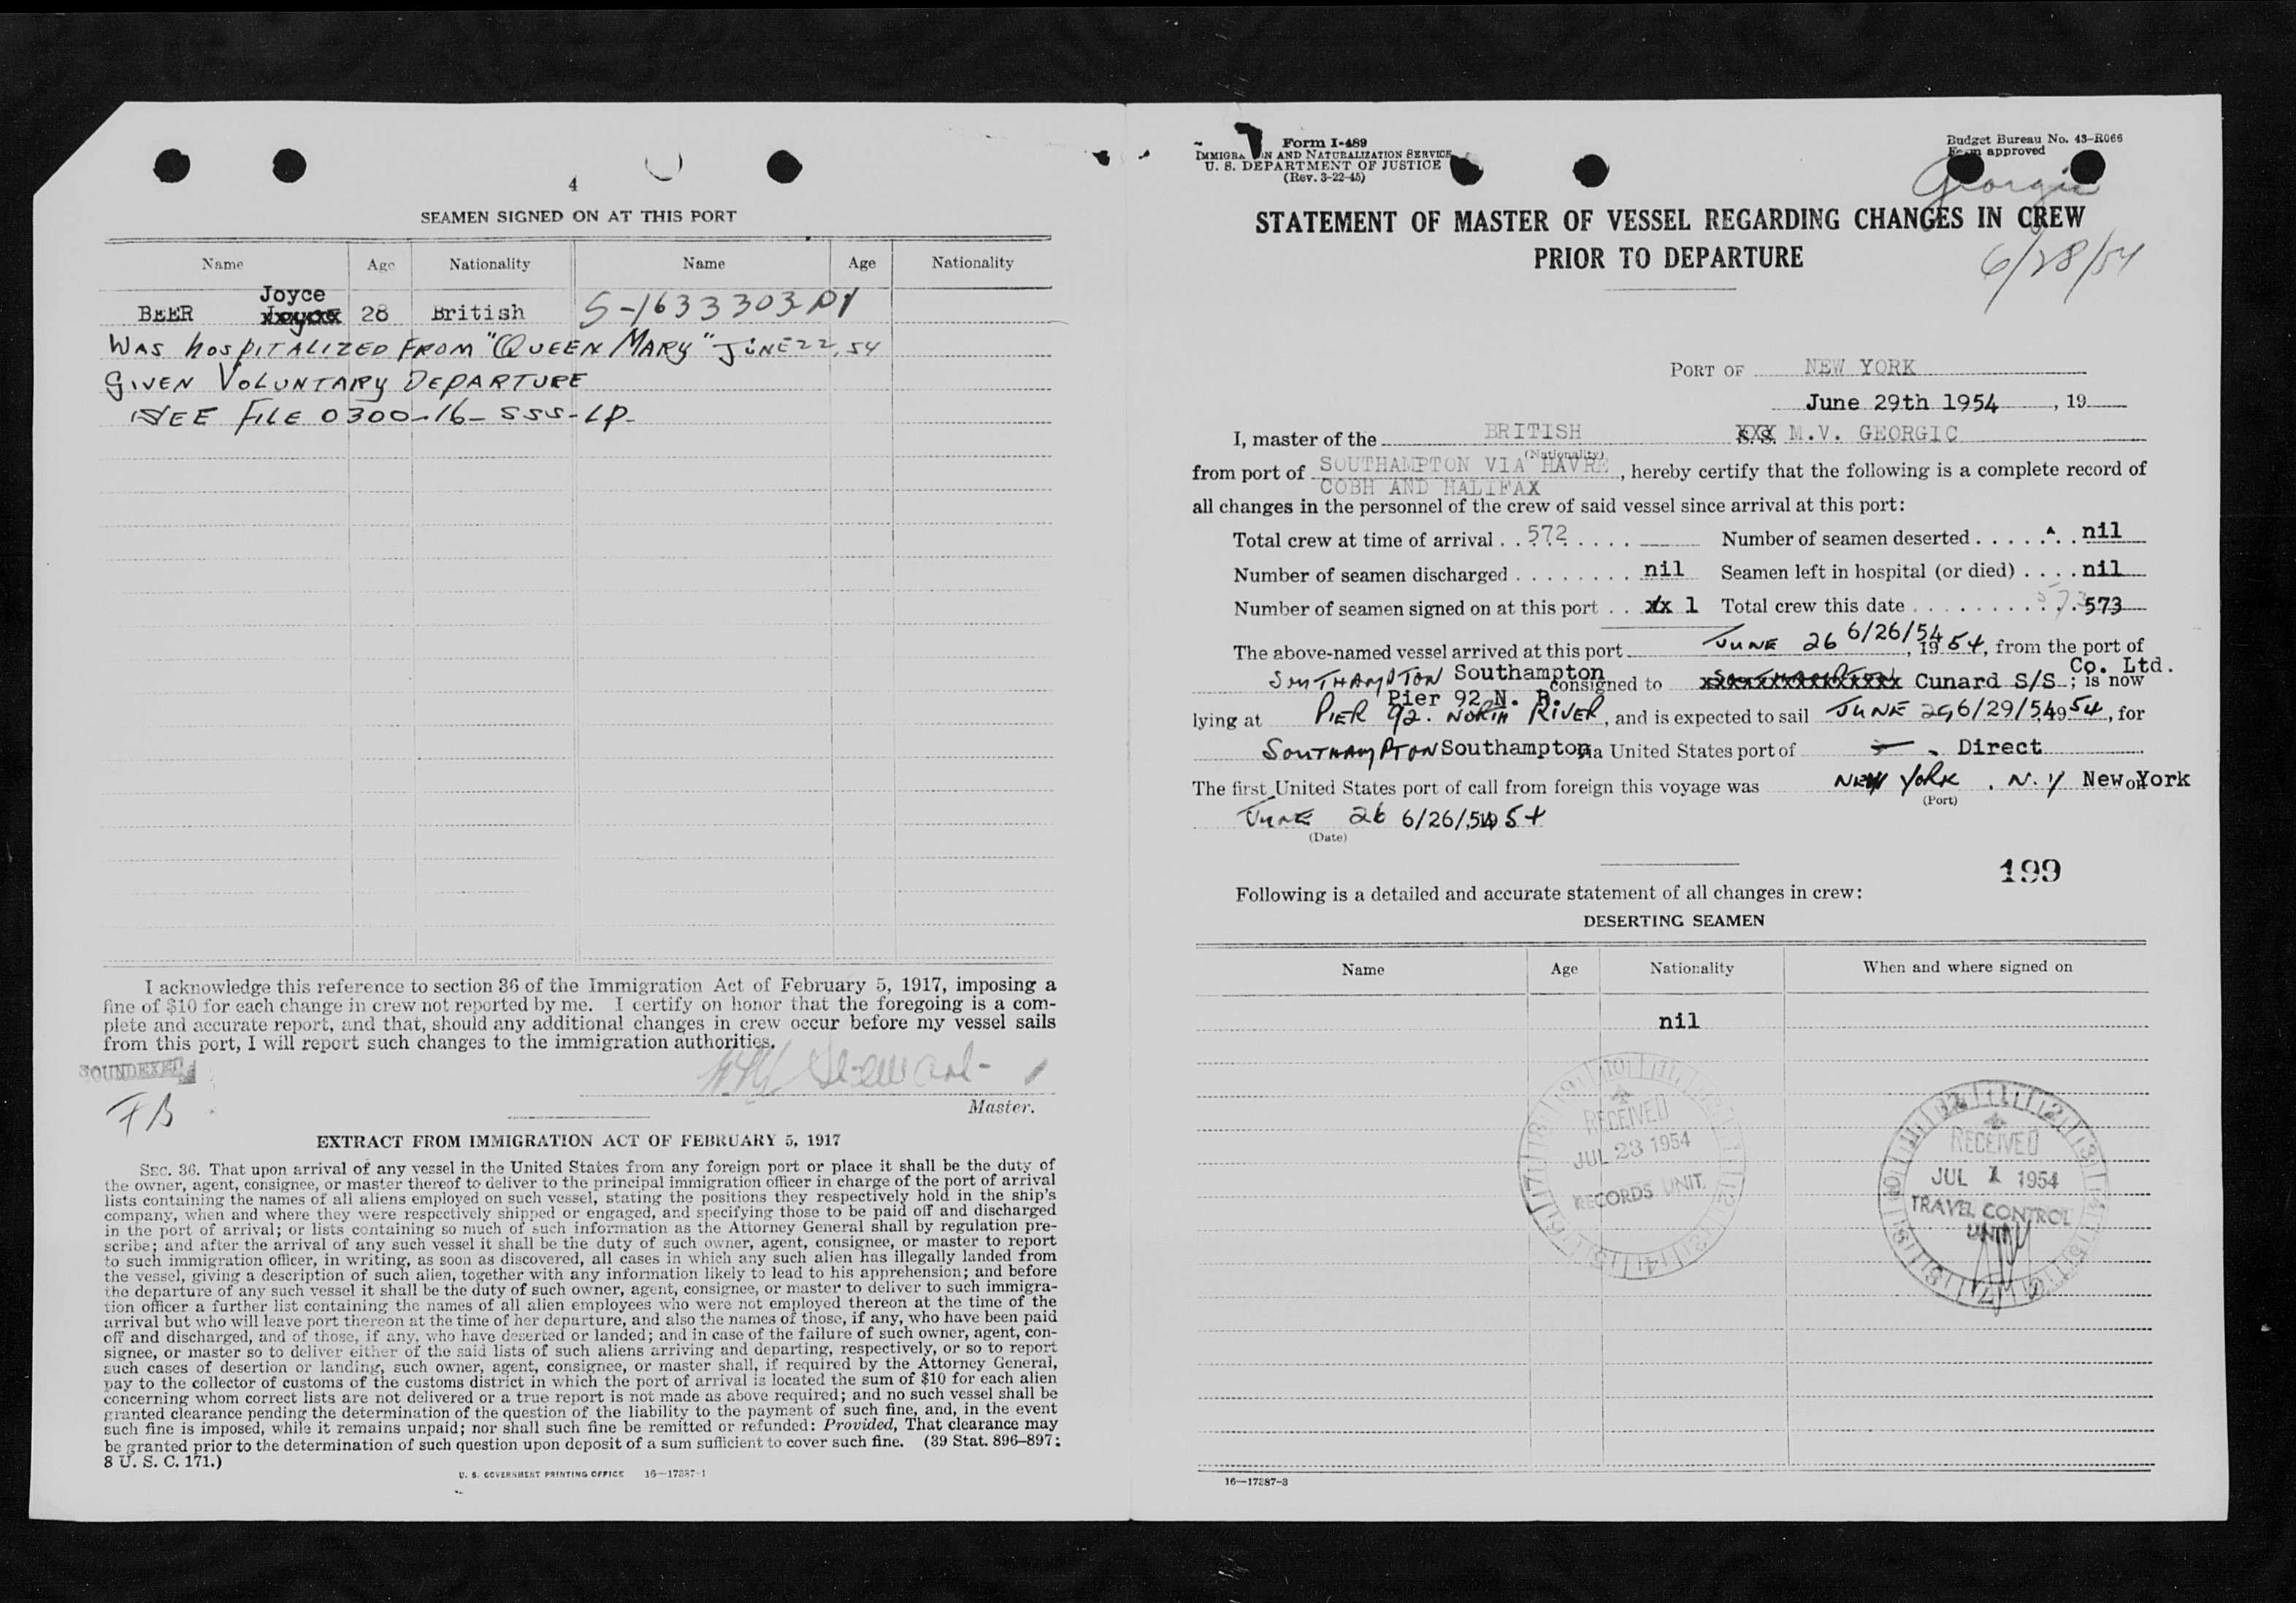 4
SEAMEN SIGNED ON AT THIS PORT
Name Age Nationality Name Age Nationality
Joyce
BEER 28 British S-1633303 DY
WAS HOSPITALIZED FROM "QUEEN MARY" JUNE 22, 54
GIVEN VOLUNTARY DEPARTURE
SEE FILE 0300-16- SSS-LP-
I acknowledge this reference to section 36 of the Immigration Act of February 5, 1917, imposing a
fine of $10 for each change in crew not reported by me. I certify on honor that the foregoing is a com-
plete and accurate report, and that, should any additional changes in crew occur before my vessel sails
from this port, I will report such changes to the immigration authorities.
SOUNDEXED
FB
Master.
EXTRACT FROM IMMIGRATION ACT OF FEBRUARY 5, 1917
SEC. 36. That upon arrival of any vessel in the United States from any foreign port or place it shall be the duty of
the owner, agent, consignee, or master thereof to deliver to the principal immigration officer in charge of the port of arrival
lists containing the names of all aliens employed on such vessel, stating the positions they respectively hold in the ship's
company, when and where they were respectively shipped or engaged, and specifying those to be paid off and discharged
in the port of arrival; or lists containing so much of such information as the Attorney General shall by regulation pre-
scribe; and after the arrival of any such vessel it shall be the duty of such owner, agent, consignee, or master to report
to such immigration officer, in writing, as soon as discovered, all cases in which any such alien has illegally landed from
the vessel, giving a description of such alien, together with any information likely to lead to his apprehension; and before
the departure of any such vessel it shall be the duty of such owner, agent, consignee, or master to deliver to such immigra-
tion officer a further list containing the names of all alien employees who were not employed thereon at the time of the
arrival but who will leave port thereon at the time of her departure, and also the names of those, if any, who have been paid
off and discharged, and of those, if any, who have deserted or landed; and in case of the failure of such owner, agent, con-
signee, or master so to deliver either of the said lists of such aliens arriving and departing, respectively, or so to report
such cases of desertion or landing, such owner, agent, consignee, or master shall, if required by the Attorney General,
pay to the collector of customs of the customs district in which the port of arrival is located the sum of $10 for each alien
concerning whom correct lists are not delivered or a true report is not made as above required; and no such vessel shall be
granted clearance pending the determination of the question of the liability to the payment of such fine, and, in the event
such fine is imposed, while it remains unpaid; nor shall such fine be remitted or refunded: Provided, That clearance may
be granted prior to the determination of such question upon deposit of a sum sufficient to cover such fine. (39 Stat. 896-897;
8 U. S. C. 171.)
U. S. GOVERNMENT PRINTING OFFICE 16—17387-1
Form I-489
IMMIGRATION AND NATURALIZATION SERVICE
U. S. DEPARTMENT OF JUSTICE
(Rev. 3-22-45)
Budget Bureau No. 43-R066
Form approved
Georgic
STATEMENT OF MASTER OF VESSEL REGARDING CHANGES IN CREW
PRIOR TO DEPARTURE
6/28/54
PORT OF NEW YORK
June 29th 1954, 19
I, master of the BRITISH XXX M.V. GEORGIC
(Nationality)
from port of SOUTHAMPTON VIA HAVRE, hereby certify that the following is a complete record of
COBH AND HALIFAX
all changes in the personnel of the crew of said vessel since arrival at this port:
Total crew at time of arrival . . 572 . . . . Number of seamen deserted . . . . . . . nil
Number of seamen discharged . . . . . . . . nil Seamen left in hospital (or died) . . . . nil
Number of seamen signed on at this port . . xx 1 Total crew this date . . . . . . . . . . 573 573
The above-named vessel arrived at this port JUNE 26 6/26/54, 1954, from the port of
SOUTHAMPTON Southampton consigned to xxxxxxxxxxxxxxxx Cunard S/S Co. Ltd.; is now
Pier 92 N. R.
lying at PIER 92. NORTH RIVER, and is expected to sail JUNE 29, 6/29/54, 1954, for
SOUTHAMPTON Southampton via United States port of - . Direct
The first United States port of call from foreign this voyage was NEW YORK, N.Y New York on
(Port)
JUNE 26 6/26/54, 1954
(Date)
199
Following is a detailed and accurate statement of all changes in crew:
DESERTING SEAMEN
Name Age Nationality When and where signed on
nil
RECEIVED
JUL 23 1954
RECORDS UNIT
RECEIVED
JUL 1 1954
TRAVEL CONTROL
UNIT
16—17387-3